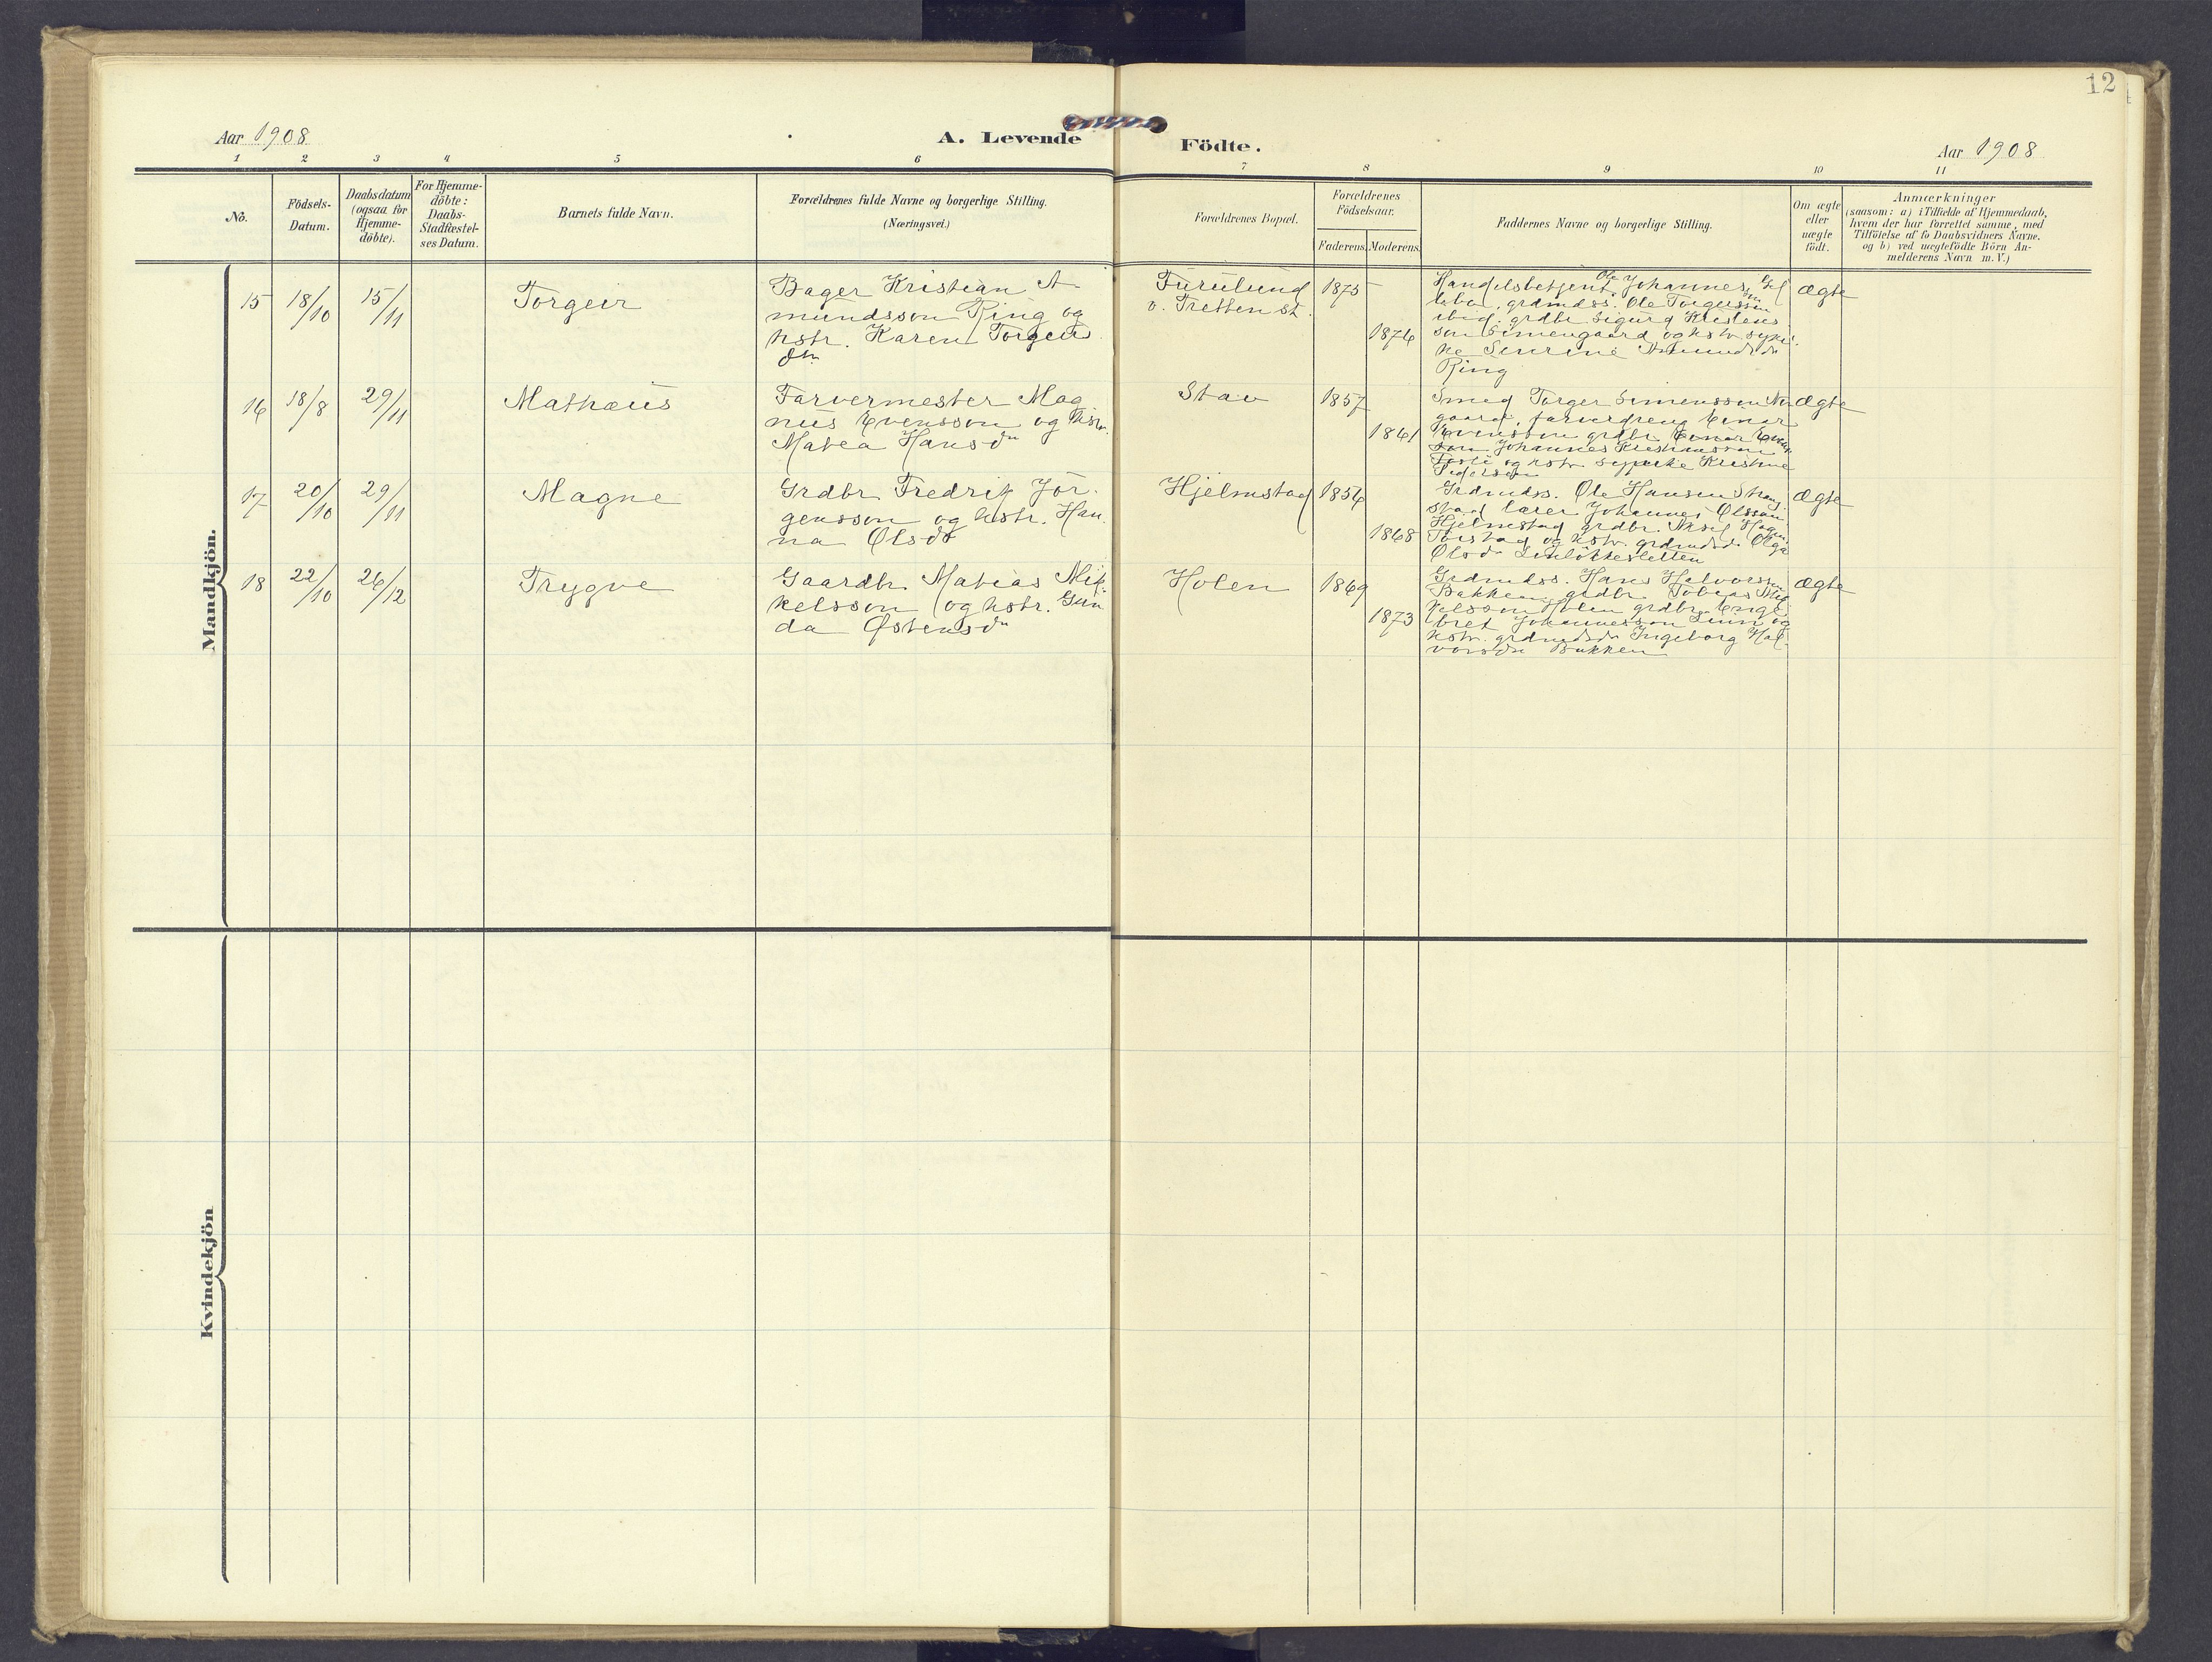 12
Aar 1908
A. Levende Födte.
Aar 1908
1 2 3 4 5 6 7 8 9 10 11
No.
Födsels-
Datum.
Daabsdatum
(ogsaa for
Hjemme-
döbte).
For Hjemme-
döbte:
Daabs-
Stadfæstel-
ses Datum.
Barnets fulde Navn.
Forældrenes fulde Navne og borgerlige Stilling.
(Næringsvei.)
Forældrenes Bopæl.
Forældrenes
Födselsaar.
Faderens. Moderens.
Faddernes Navne og borgerlige Stilling.
Om ægte
eller
uægte
födt.
Anmærkninger
(saasom: a) i Tilfælde af Hjemmedaab,
hvem der har forrettet samme, med
Tilföielse af to Daabsvidners Navne,
og b) ved uægtefödte Börn An-
melderens Navn m.V.)
Mandkjön.
15 18/10 15/11 Torgeir
Bager Kristian A-
mundsson Ring og
hstr. Karen Torgers
dtr
Furulund
v. Tretten st.
1875
1876
Handelsbetjent Ole Johannes
grdmdss. Ole Torgersson
ibid. grdbr Sigurd Kristens
son Simengaard og hstr.
Ring
ægte
16 18/8 29/11 Mathæus
Farvermester Mag
nus Evensson og hstr.
Matea Hansdtr
Stav
1857
1861
Smed Torger Simensson
gaard, farverdreng Einar
Evensson grdbr Einar
Johannes Kristiansson
og hstr. Kristine
Pedersen
ægte
17 20/10 29/11 Magne
Grdbr Fredrik Jör-
gensson og hstr. Han
na Olsdtr
Hjelmstad
1856
1868
Grdmdss. Ole Hansen
stad lærer Johannes Olssøn
Hjelmstad grdbr. Aksel
og hstr. grdmdsdtr Olga
Olsdtr
ægte
18 22/10 26/12 Trygve
Gaardbr Matias Mik
kelsson og hstr. Gun
da Østensdtr
Holen
1869
1873
Grdmdss. Hans Halvorssen
Bakken grdbr Tobias Mik
kelsson Holen grdbr Enge
bret Johannesson og
hstr. grdmdsdtr Ingeborg Hal
vorsdtr Bakken
ægte
Kvindekjön